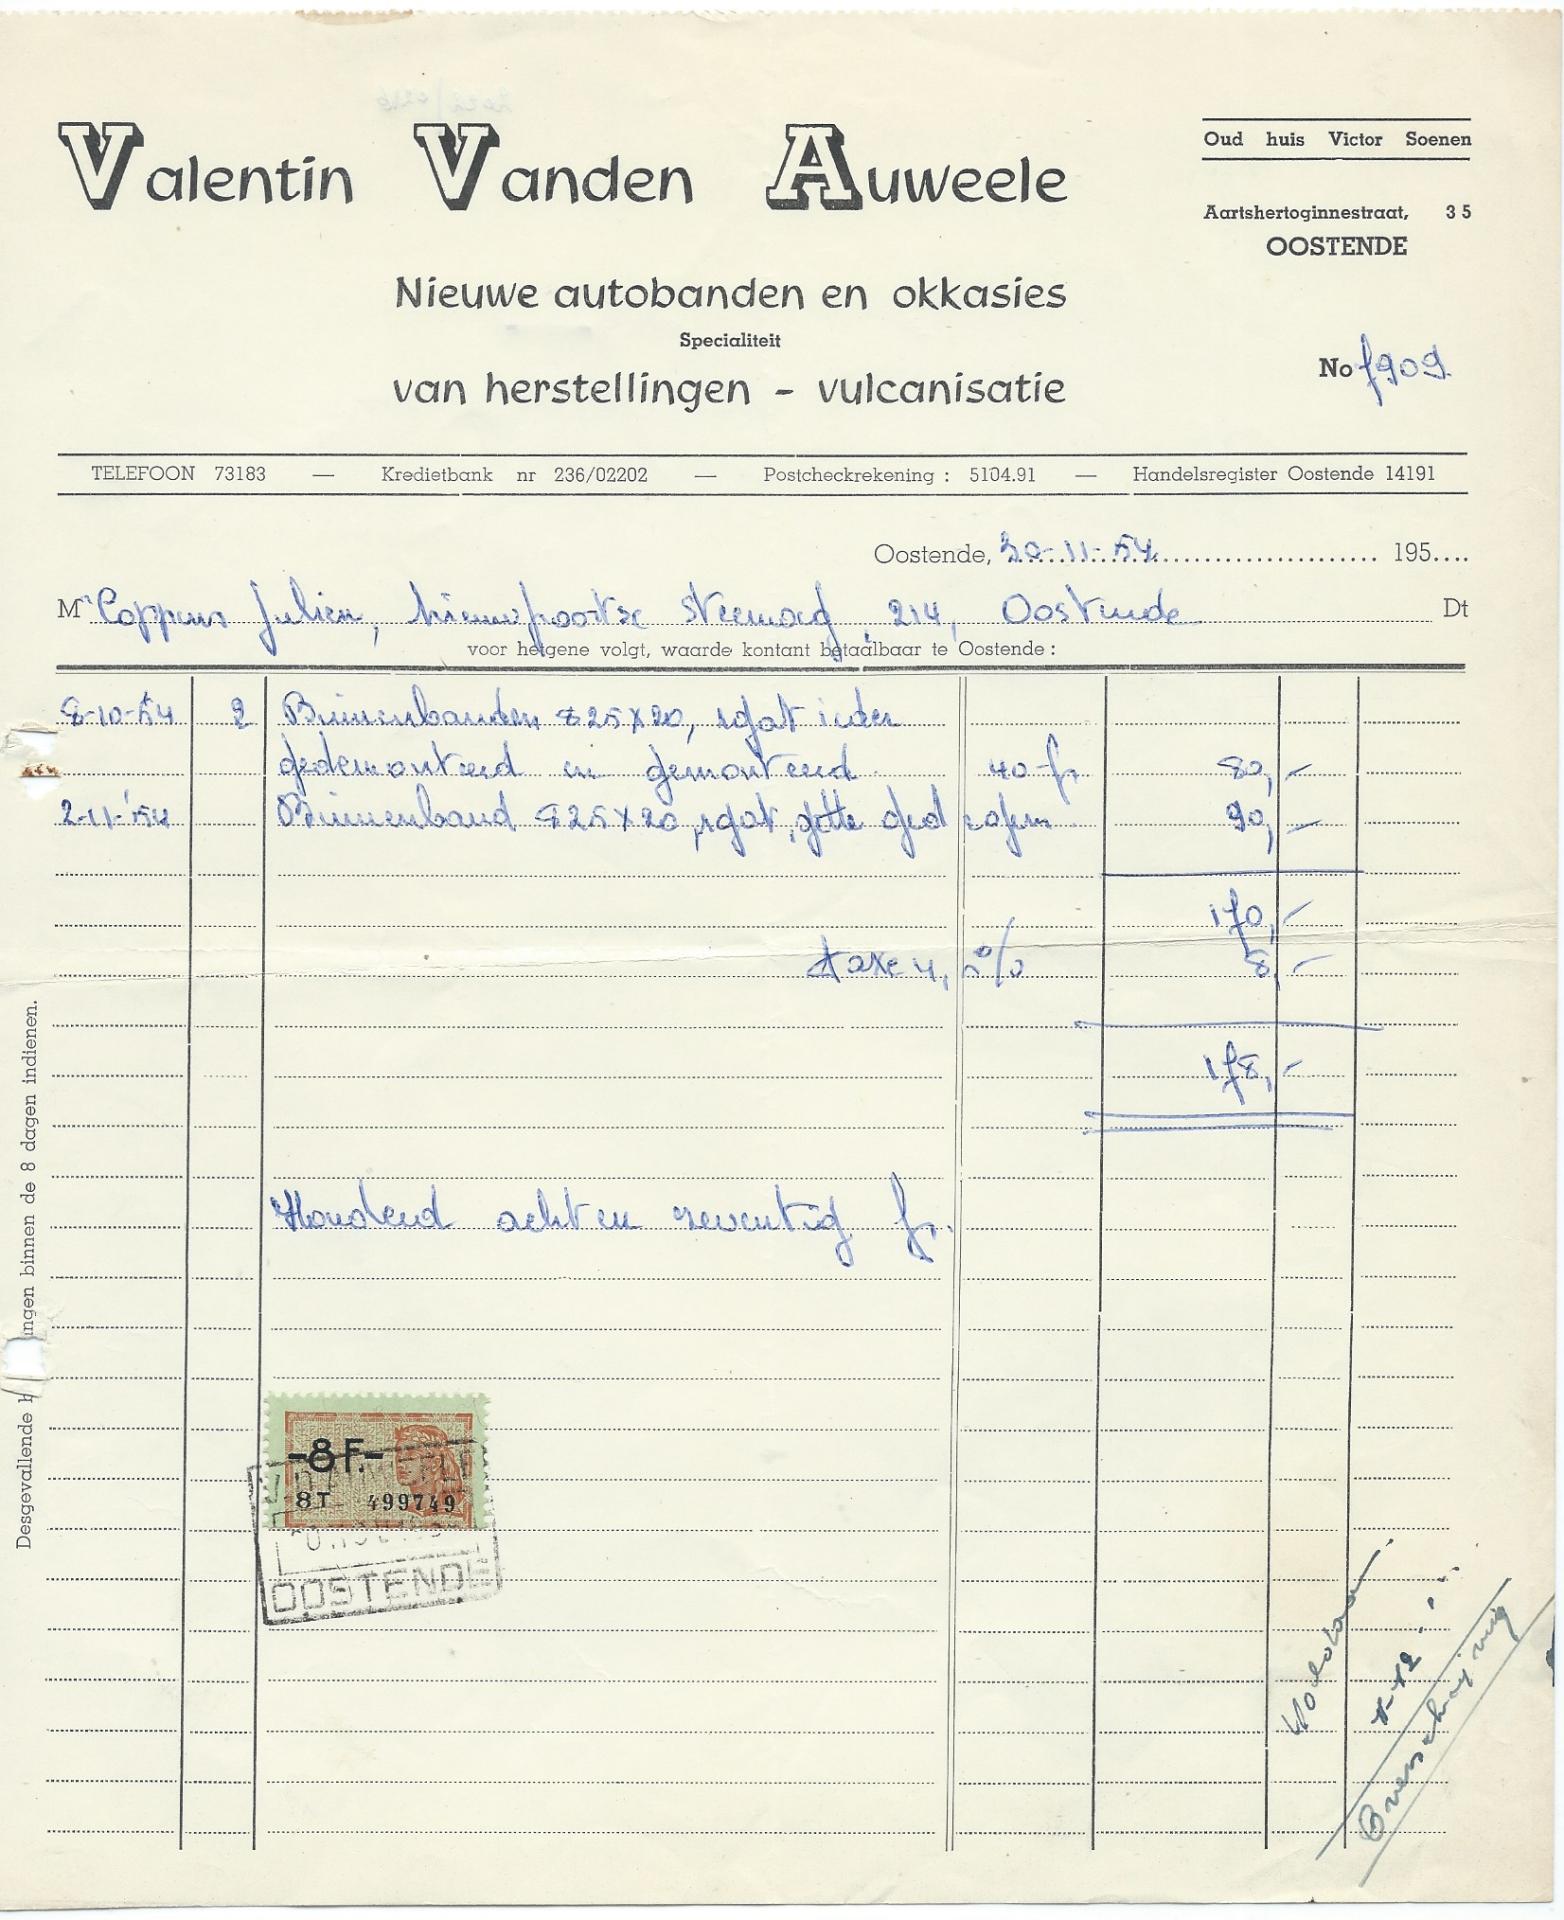 Valentin Vanden Auweele
Oud huis Victor Soenen
Aartshertoginnestraat, 35
OOSTENDE
Nieuwe autobanden en okkasies
Specialiteit
van herstellingen - vulcanisatie
No 7909.
TELEFOON 73183 — Kredietbank nr 236/02202 — Postcheckrekening : 5104.91 — Handelsregister Oostende 14191
Oostende, 30-11-54 195....
Mr Coppens Julien, Nieuwpoortse steenweg, 214, Oostende Dt
voor hetgene volgt, waarde kontant betaalbaar te Oostende :
8-10-54 2 Binnenbanden 825x20, 1 gat ieder
gedemonteerd en gemonteerd 40 fr 80,-
2-11-54 Binnenband 825x20, 1 gat, 90,-
170,-
taxe 4,50% 8,-
178,-
Honderd acht en zeventig fr.
Desgevallende ingen binnen de 8 dagen indienen.
-8 F.-
8T 499749
OOSTENDE
Voldaan
Overschrijving